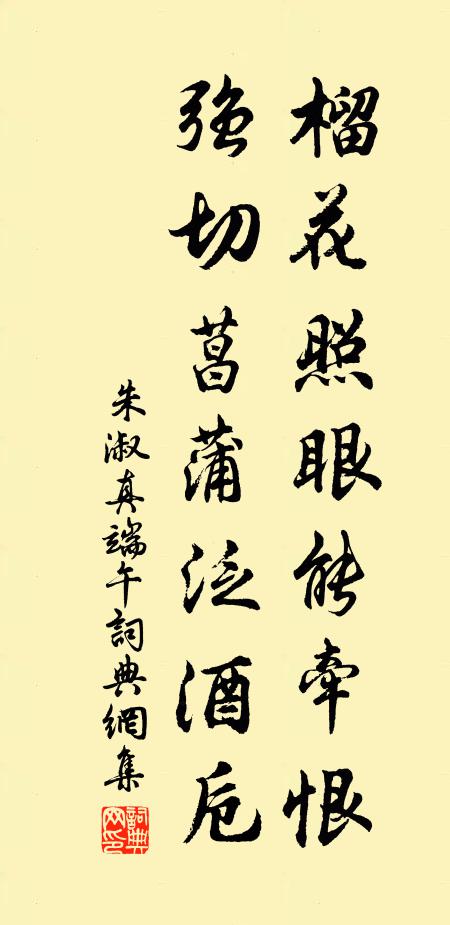 榴花照眼能牽恨
強切菖蒲泛酒卮
朱淑真端午詞典網集
詞典网印